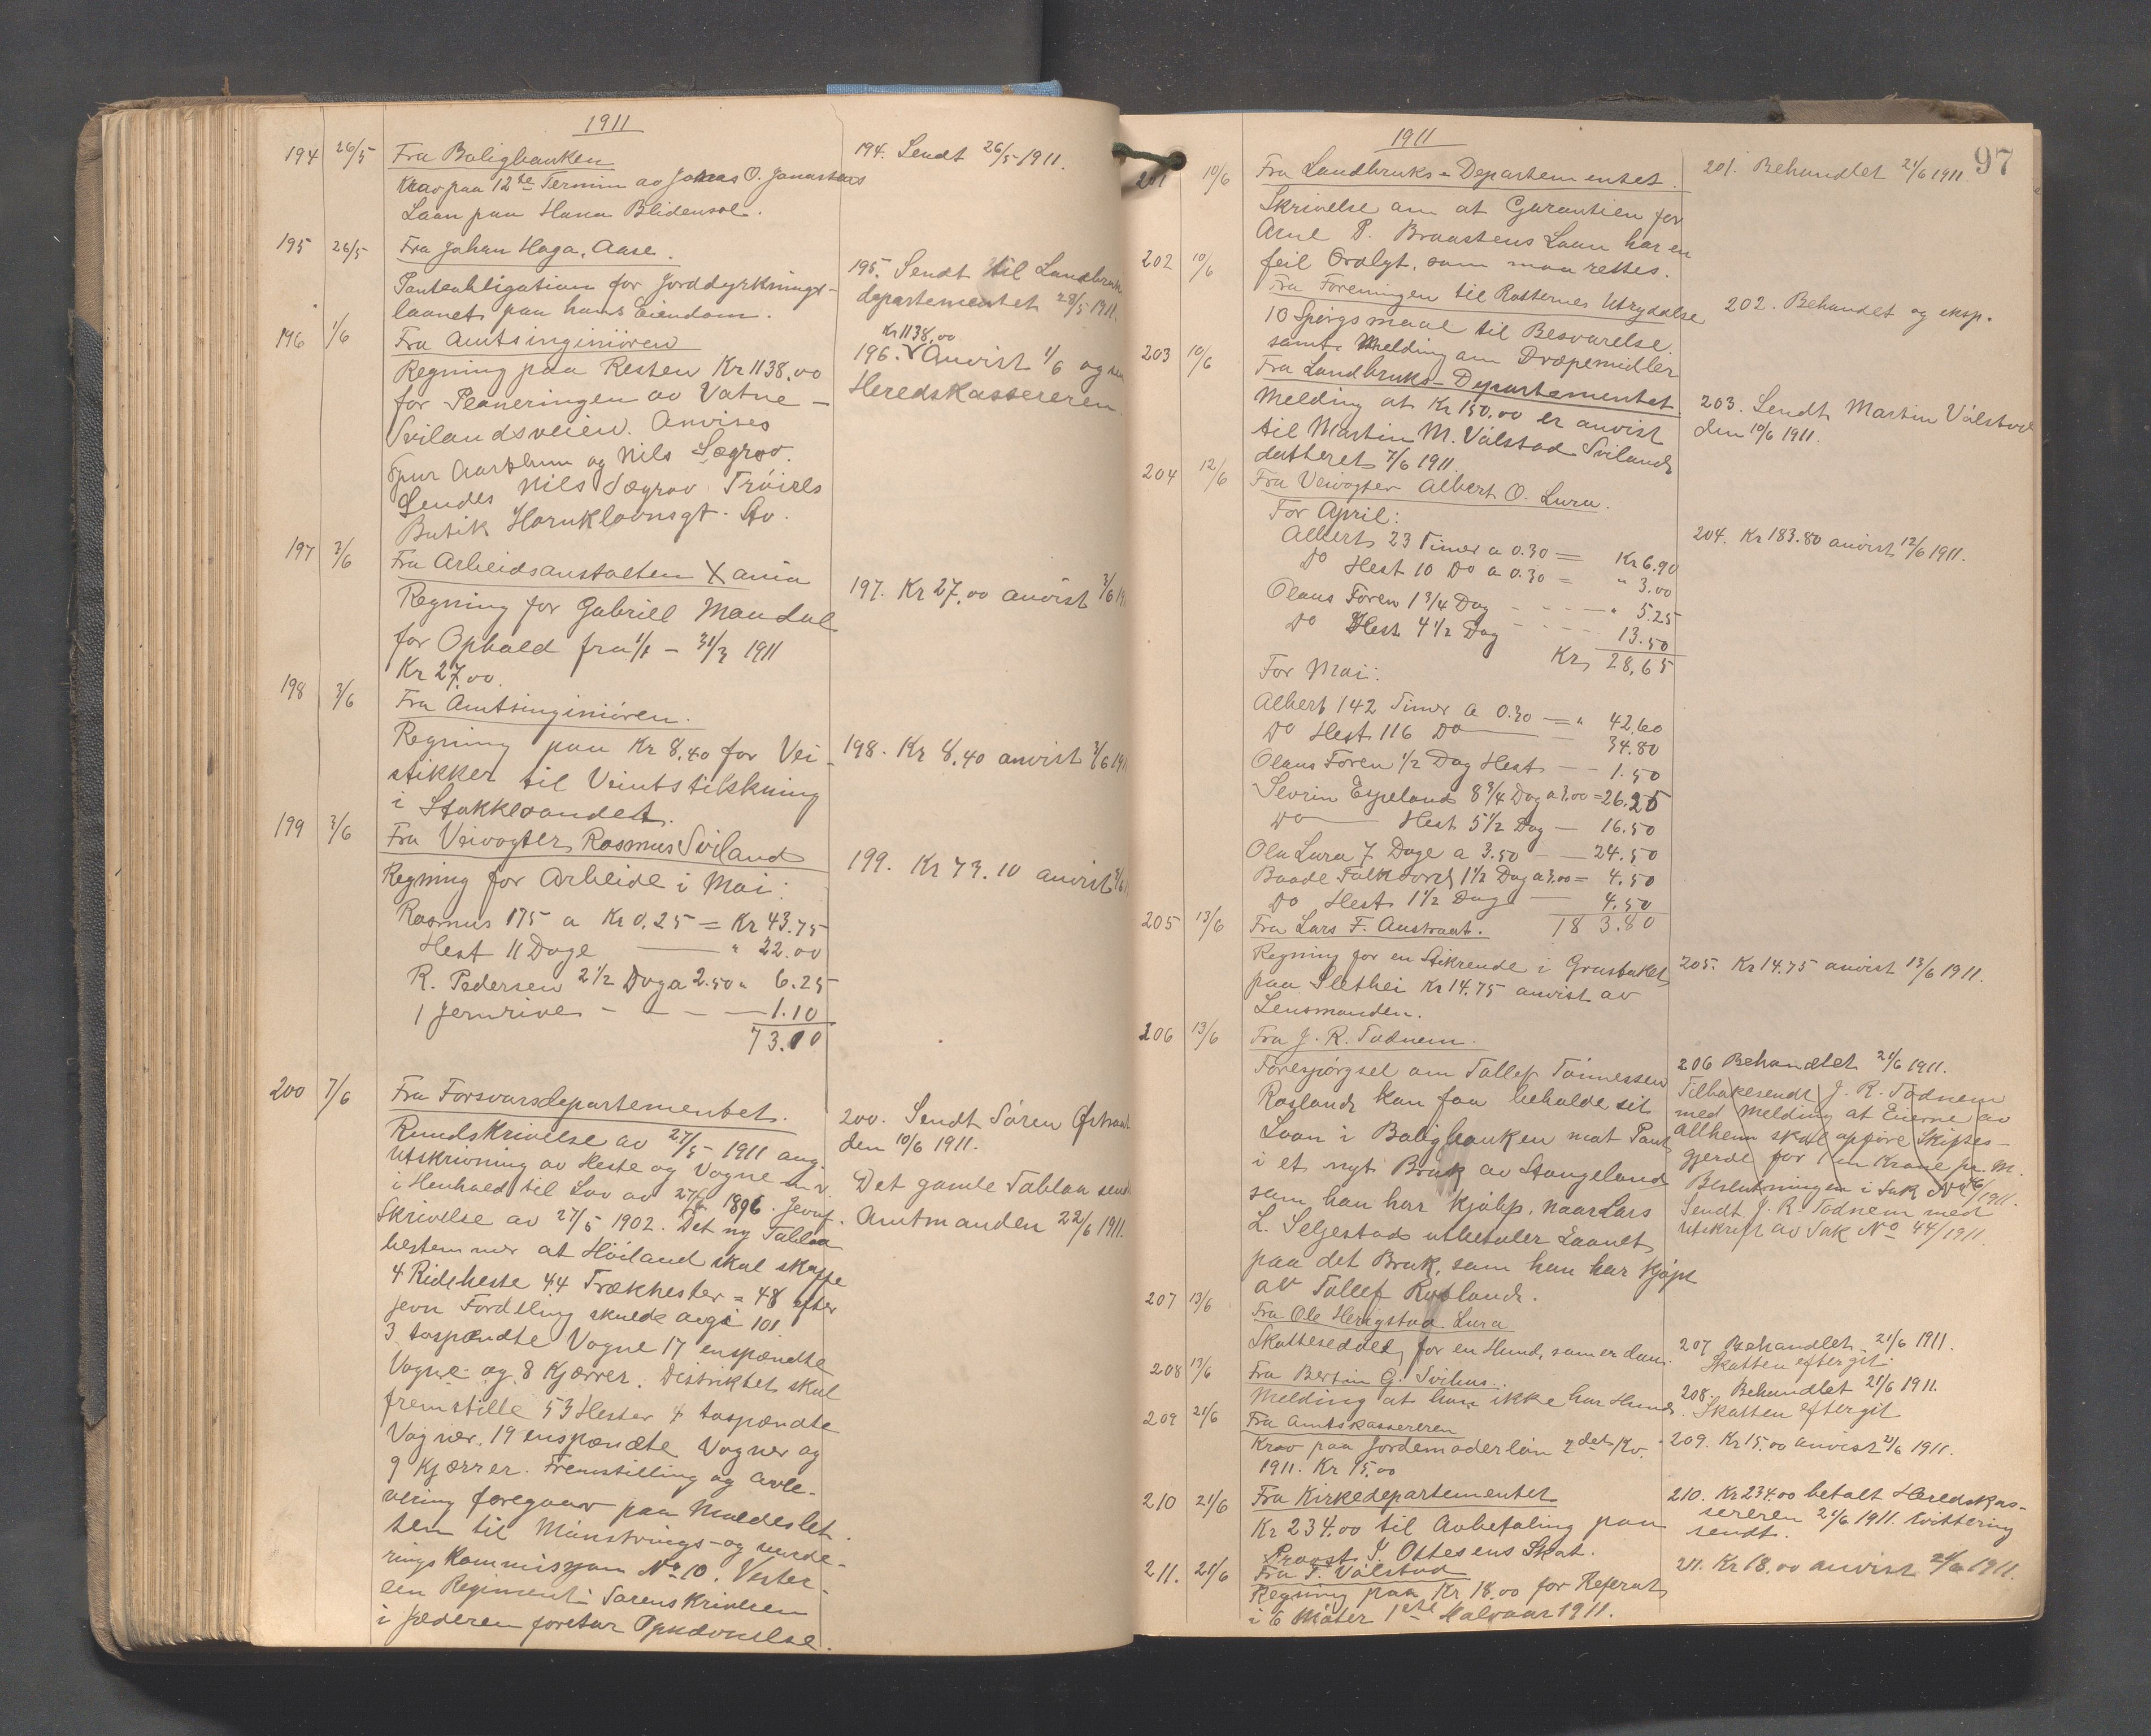 1911
194 26/5 Fra Boligbanken
Krav paa 12te Termin av Jonas O. Jonassens
Laan paa Hana Blidensol.
194. Sendt 26/5 1911.
195 26/5 Fra Johan Haga, Aase.
Panteobligation for Jorddyrknings-
laanet paa hans Eiendom.
195. Sendt til Landbruks
departementet 28/5 1911.
196 1/6 Fra Amtsingeniören
Regning paa Resten Kr 1138.00
for Planeringen av Vatne -
Svilandsveien. Anvises
Aarthun og Nils Sægrov.
Sendes Nils Sægrov Tröiels
Butik Haraklovnsgt. Stv.
Kr 1138.00
196. Anvist 1/6 og
Heredskassereren.
197 3/6 Fra Arbeidsanstalten Xania
Regning for Gabriel Mandal
for Ophold fra 1/1 - 31/3 1911
Kr 27.00.
197. Kr 27.00 anvist 3/6 19
198 3/6 Fra Amtsingeniören.
Regning paa Kr 8.40 for Vei-
stikker til Veiutstikkning
i Stokkelandet.
198. Kr 8.40 anvist 3/6 191
199 3/6 Fra Veivogter Rasmus Sviland
Regning for Arbeide i Mai:
Rasmus 175 a Kr 0.25 = Kr 43.75
Hest 11 Dage " 22.00
R. Pedersen 2 1/2 Dag a 2.50 " 6.25
1 Jernrive - - - 1.10
73.10
199. Kr 73.10 anvist 3/6
200 7/6 Fra Forsvarsdepartementet.
Rundskrivelse av 27/5 1911 ang.
Utskrivning av Heste og Vogne m.v.
i Henhold til Lov av 1896. Jevnf.
Skrivelse av 27/5 1902. Det ny Tablaa
bestemmer at Höiland skal skaffe
4 Rideheste 44 Trækhester = 48 efter
jevn Fordeling skulde avgi 101
3 tospændte Vogne 17 enspændte
Vogne og 8 Kjærrer. Distriktet skal
fremstille 53 Hester 4 tospændte
Vogner, 19 enspændte Vogner og
9 Kjærrer. Fremstilling og avle-
vering foregaar paa Maldeslet
ten til Mönstrings- og vurde-
ringskommisjon No 10. Vester-
len Regiment. Sorenskriveren
i Jæderen foretar Opnævnelse.
200. Sendt Sören Östraat
den 10/6 1911.
Det gamle Tablaa sendt
Amtmanden 22/6 1911.
97
1911
201 10/6 Fra Landbruks-Departementet.
Skrivelse om at Garantien for
Arne P. Braastens Laan har en
feil Ordlyt, som maa rettes.
201. Behandlet 21/6 1911.
202 10/6 Fra Foreningen til Rotternes Utrydelse
10 Spörgsmaal til Besvarelse
samt Melding om Dræpemidler
202. Behandlet og eksp.
203 10/6 Fra Landbruks-Departementet.
Melding at Kr 150.00 er anvist
til Martin M. Válstad Sviland
datteret 7/6 1911.
203. Sendt Martin Válstad
den 10/6 1911.
204 12/6 Fra Veivogter Albert O. Lura.
For April:
Albert 23 Timer a 0.30 = Kr 6.90
Do Hest 10 Do a 0.30 = " 3.00
Olaus Foren 1 3/4 Dag - - - " 5.25
Do Hest 4 1/2 Dag - - - 13.50
Kr 28.65
For Mai:
Albert 142 Timer a 0.30 = " 42.60
Do Hest 116 Do 34.80
Olaus Foren 1/2 Dag Hest - - 1.50
Sevrin Espeland 8 3/4 Dag a 3.00 = 26.25
Do Hest 5 1/2 Dag - 16.50
Ola Lura 7 Dage a 3.50 - - 24.50
Baade Folk 1 1/2 Dag a 3.00 = 4.50
Do Hest 1 1/2 Dag - 4.50
183.80
204. Kr 183.80 anvist 12/6 1911.
205 13/6 Fra Lars F. Austraat.
Regning for en Stikrende i Grusbaket
paa Slethei Kr 14.75 anvist av
Lensmanden.
205. Kr 14.75 anvist 13/6 1911.
206 13/6 Fra J. R. Todnem.
Forespörgsel om Tollef Tönnessen
Rosland kan faa beholde sit
Laan i Boligbanken mot Pant
i et nyt Bruk av Stangeland
som han har kjöbp, naar Lars
L. Seljestad utbetaler Laanet
paa det Bruk, som han har kjöpt
av Tollef Rosland.
206 Behandlet 21/6 1911.
Tilbakesendt J. R. Todnem
med Melding at Eierne av
Allheim skal opföre Skiftes-
gjerde for 1 en Krone pr. M.
Beslutningen i Sak No 46/1911.
Sendt J. R. Todnem med
utskrift av Sak No 44/1911.
207 13/6 Fra Ole Herigstad Lura
Skatteseddel for en Hund, som er död.
207 Behandlet 21/6 1911.
Skatten eftergit.
208 13/6 Fra Bertin G. Svihus.
Melding at han ikke har Hund.
208. Behandlet 21/6 1911.
Skatten eftergit
209 21/6 Fra Amtskassereren
Krav paa Jordemoderlön 2det Kv.
1911. Kr 15.00
209. Kr 15.00 anvist 21/6 1911.
210 21/6 Fra Kirkedepartementet
Kr 234.00 til Avbetaling paa
Provst J. Ottesens Skat.
210. Kr 234.00 betalt Heredskas-
sereren 21/6 1911. Kvittering
sendt.
211. 21/6 Fra T. Válstad
Regning paa Kr 18.00 for Referat
i 6 Möter 1ste Halvaar 1911.
211. Kr 18.00 anvist 21/6 1911.